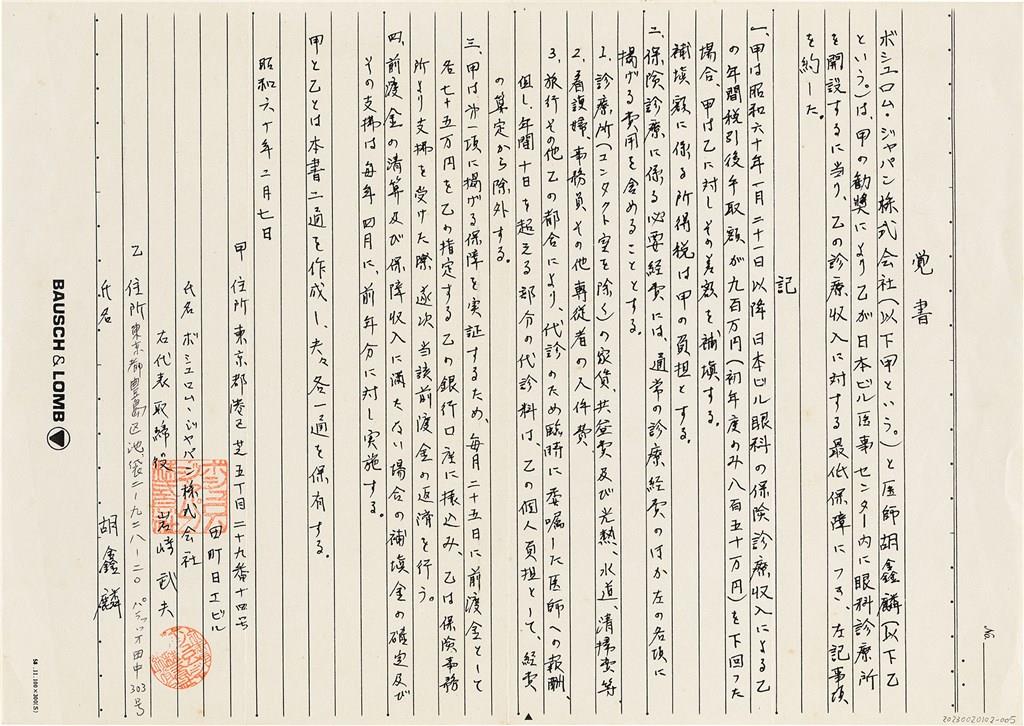 覚書
ボシュロム・ジャパン株式会社(以下甲という。)と医師胡鑫麟(以下乙
という。)は、甲の勧奨により乙が日本ビル医事センター内に眼科診療所
を開設するに当り、乙の診療収入に対する最低保障につき、左記事項
を約した。
記
一、甲は昭和六十年一月二十一日以降日本ビル眼科の保険診療収入による乙
の年間税引後手取額が九百万円(初年度のみ八百五十万円)を下回った
場合、甲は乙に対しその差額を補填する。
補填額に係る所得税は甲の負担とする。
二、保険診療に係る必要経費には、通常の診療経費のほか左の各項に
掲げる費用を含めることとする。
1. 診療所(コンタクト室を除く)の家賃、共益費及び光熱、水道、清掃費等
2. 看護婦、事務員その他専従者の人件費
3. 旅行その他乙の都合により、代診のため臨時に委嘱した医師への報酬、
但し、年間十日を超える部分の代診料は、乙の個人負担として、経費
の算定から除外する。
三、甲は第一項に掲げる保障を実証するため、毎月二十五日に前渡金として
各七十五万円を乙の指定する乙の銀行口座に振込み、乙は保険事務
所より支払を受けた際、逐次当該前渡金の返済を行う。
四、前渡金の清算及び保障収入に満たない場合の補填金の確定及び
その支払は毎年四月に、前年分に対し実施する。
甲と乙とは本書二通を作成し、夫々各一通を保有する。
昭和六十年二月七日
甲 住所 東京都港区芝五丁目二十九番十四号
田町日工ビル
氏名 ボシュロム・ジャパン株式会社
右代表取締役 岩崎武夫
乙 住所 東京都豊島区池袋二ー九二八ー二〇 パシフィオ田中303号
氏名 胡鑫麟
BAUSCH & LOMB
No.
58.11.100×300(S)
20230020102-005